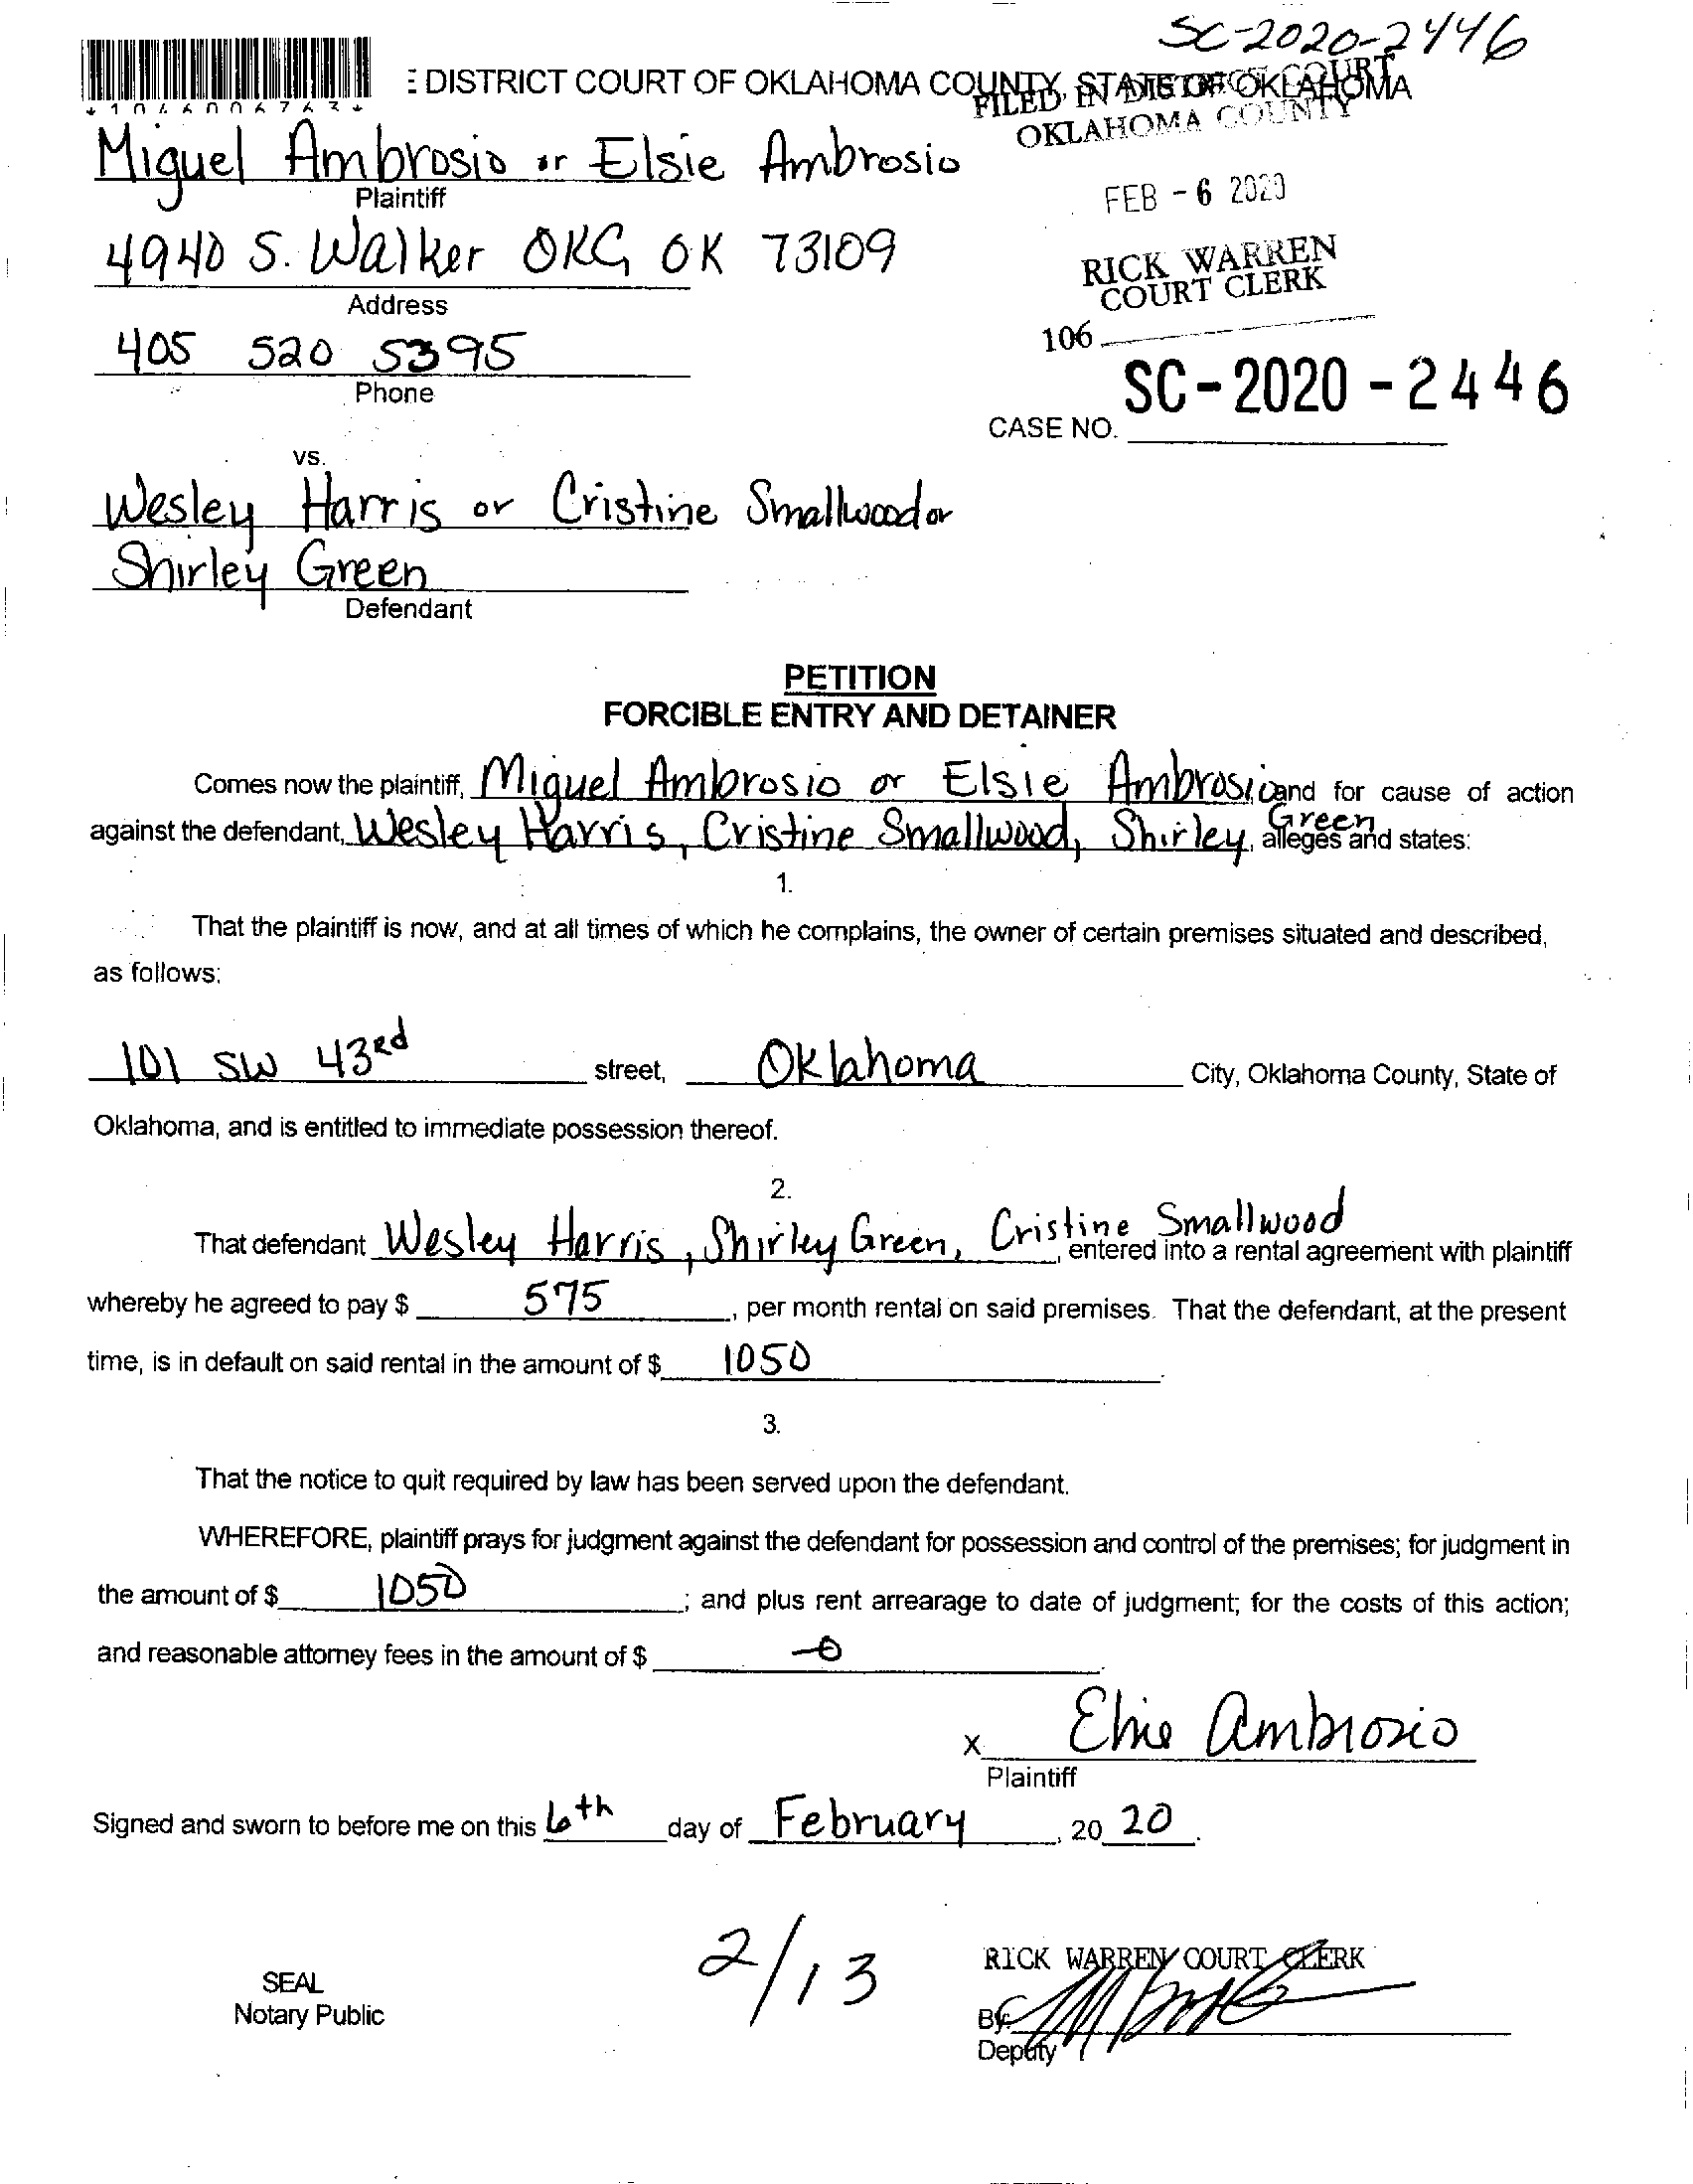 SC-2020-2446
E DISTRICT COURT OF OKLAHOMA COUNTY, STATE OF OKLAHOMA
FILED IN DISTRICT COURT
OKLAHOMA COUNTY
*1046006763*
Miguel Ambrosio or Elsie Ambrosio
Plaintiff
FEB - 6 2020
4940 S. Walker OKC, OK 73109
RICK WARREN
COURT CLERK
Address
106
405 520 5395
Phone
SC-2020-2446
CASE NO.
vs.
Wesley Harris or Cristine Smallwood or
Shirley Green
Defendant
PETITION
FORCIBLE ENTRY AND DETAINER
Comes now the plaintiff, Miguel Ambrosio or Elsie Ambrosio and for cause of action
against the defendant, Wesley Harris, Cristine Smallwood, Shirley Green, alleges and states:
1.
That the plaintiff is now, and at all times of which he complains, the owner of certain premises situated and described,
as follows:
101 SW 43rd street, Oklahoma City, Oklahoma County, State of
Oklahoma, and is entitled to immediate possession thereof.
2.
That defendant Wesley Harris, Shirley Green, Cristine Smallwood, entered into a rental agreement with plaintiff
whereby he agreed to pay $ 575, per month rental on said premises. That the defendant, at the present
time, is in default on said rental in the amount of $ 1050.
3.
That the notice to quit required by law has been served upon the defendant.
WHEREFORE, plaintiff prays for judgment against the defendant for possession and control of the premises; for judgment in
the amount of $ 1050; and plus rent arrearage to date of judgment; for the costs of this action;
and reasonable attorney fees in the amount of $ -0.
X Elsie Ambrosio
Plaintiff
Signed and sworn to before me on this 6th day of February, 20 20.
2/13
RICK WARREN COURT CLERK
SEAL
Notary Public
By:
Deputy